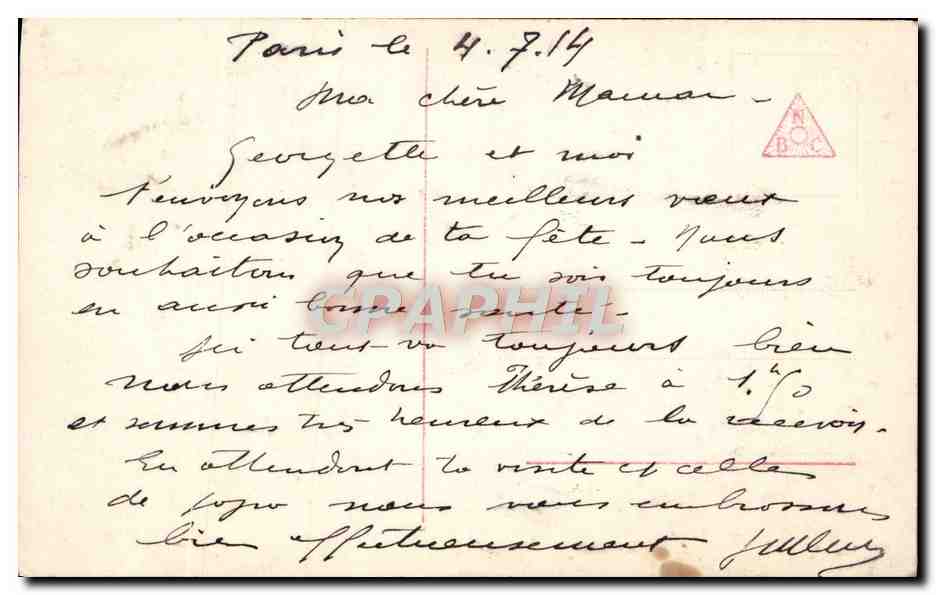 Paris le 4.7.14
Ma chère Maman -
N
B C
Georgette et moi
t'envoyons nos meilleurs vœux
à l'occasion de ta fête - Nous
souhaitons que tu sois toujours
en aussi bonne santé -
CPAPHIL
Ici tout va toujours bien
nous attendons Thérèse à 1.h50
et sommes très heureux de la recevoir.
En attendant ta visite et celle
de papa nous vous embrassons
bien affectueusement